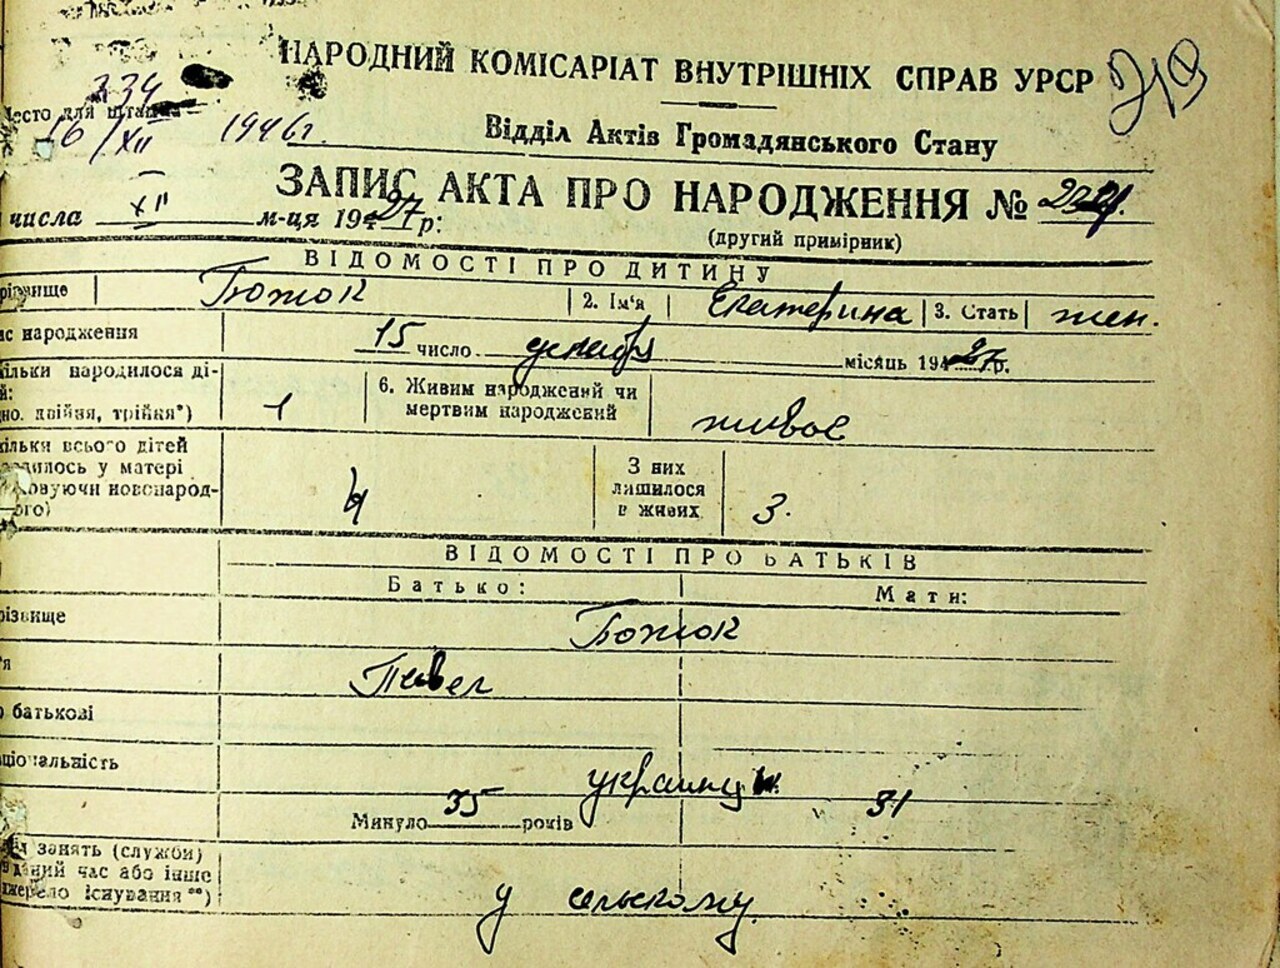 НАРОДНИЙ КОМІСАРІАТ ВНУТРІШНІХ СПРАВ УРСР
219
334
Место для штампа
16/XII 1946г.
Відділ Актів Громадянського Стану
ЗАПИС АКТА ПРО НАРОДЖЕННЯ №
числа XII м-ця 1927 р:
(другий примірник)
ВІДОМОСТІ ПРО ДИТИНУ
різвище Божок 2. Ім'я Екатерина 3. Стать жен.
ас народження 15 число декабря місяць 1927 р.
кільки народилося ді-
й:
дно, двійня, трійня*) 1 6. Живим народжений чи мертвим народжений живое
кільки всього дітей
родилось у матері
ховуючи новонарод-
ого) 4 З них лишилося в живих 3.
ВІДОМОСТІ ПРО БАТЬКІВ
Батько: Мати:
різвище Божок
'я Павел
о батькові
аціональність украинцы
Минуло 35 років " 31
занять (служби)
даний час або інше
джерело існування **) у сельскому